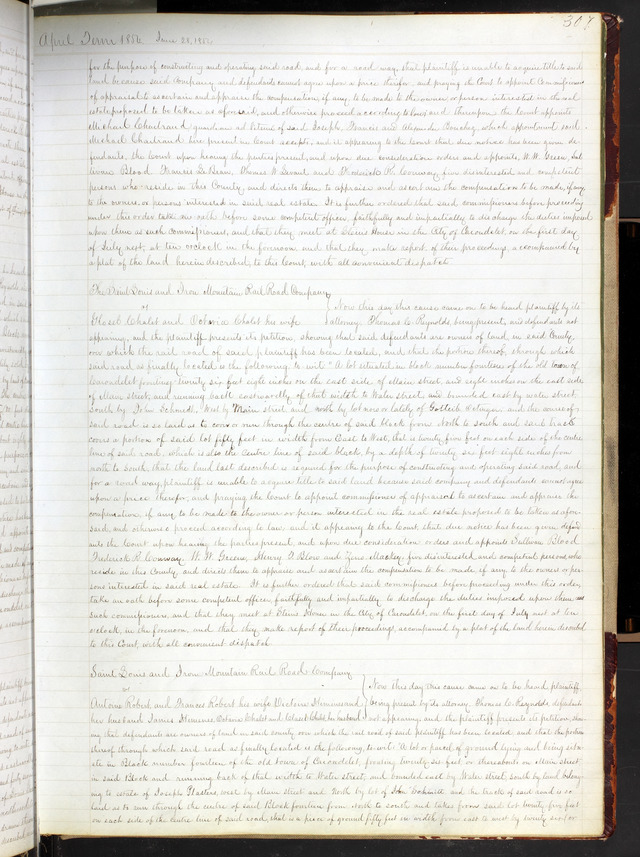 307
April Term 1856. June 28, 1856
for the purpose of constructing and operating said road and for a road way, that plaintiff is unable to acquire title to said
land because said Company and defendants cannot agree upon a price therefor, and praying the Court to appoint Commissioners
of appraisal to ascertain and appraise the compensation, if any, to be made to the owner or person interested in the real
estate proposed to be taken as aforesaid, and otherwise proceed according to law, and thereupon the Court appoints
Michael Chartrand guardian ad litem of said Joseph, Francis and Alexander which appointment said
Michael Chartrand here present in Court accepts, and it appearing to the Court that due notice has been given de-
fendants, the Court upon hearing the parties present, and upon due consideration orders and appoints, W. W. Green, Sul
livan Blood, Francis Thomas and Frederick R. Conway, five disinterested and competent
persons who reside in this County and directs them to appraise and ascertain the compensation to be made, if any
to the owners or persons interested in said real estate. It is further ordered that said commissioners before proceeding
under this order take an oath before some competent officer, faithfully and impartially to discharge the duties imposed
upon them as such Commissioners, and that they meet at House in the City of Carondelet, on the first day
of July next, at ten o'clock in the forenoon, and that they make report of their proceedings, accompanied by
a plat of the land herein described, to this Court, with all convenient dispatch
The Saint Louis and Iron Mountain Rail Road Company
vs } Now this day this cause came on to be heard plaintiff by its
Chalet and Octavia Chalet his wife attorney, Thomas C. Reynolds, being present, and defendants not
appearing, and the plaintiff presents its petition, showing that said defendants are owners of land, in said County,
over which the rail road of said plaintiff has been located, and that the portion thereof, through which
said road as finally located is the following, to wit: "A lot situated in block number fourteen of the old town of
Carondelet fronting twenty six feet eight inches on the east side of Main street, and eight inches on the east side
of Main street, and running back eastwardly of that width to Water street, and bounded east by water street,
South by John Schmidt, West by Main street and north by lot now or lately of Gottlieb and the course of
said road is so laid as to run through the centre of said block from North to South and said track
covers a portion of said lot fifty feet in width from East to West, that is twenty five feet on each side of the centre
line of said road, which is also the centre line of said block, by a depth of twenty six feet eight inches from
north to south, that the land last described is required for the purpose of constructing and operating said road, and
for a road way, plaintiff is unable to acquire title to said land because said company and defendants cannot agree
upon a price therefor, and praying the Court to appoint commissioners of appraisal to ascertain and appraise the
compensation, if any, to be made to the owner or person interested in the real estate proposed to be taken as afore-
said, and otherwise proceed according to law, and it appearing to the Court that due notice has been given defend-
ants the Court upon hearing the parties present, and upon due consideration orders and appoints Sullivan Blood
Frederick R. Conway, W. W. Greene, Henry T. Blow and Zeno Mackey, five disinterested and competent persons, who
reside in this County and directs them to appraise and ascertain the compensation to be made if any, to the owners or per-
sons interested in said real estate. It is further ordered that said commissioners before proceeding under this order,
take an oath before some competent officer, faithfully and impartially to discharge the duties imposed upon them as
such commissioners, and that they meet at House in the City of Carondelet, on the first day of July next at ten
o'clock, in the forenoon, and that they make report of their proceedings, accompanied by a plat of the land herein described
to this Court, with all convenient dispatch
Saint Louis and Iron Mountain Rail Road Company
vs } Now this day this cause came on to be heard, plaintiff
Antoine Robert and Frances Robert his wife, her husband being present by its attorney, Thomas C. Reynolds, defendants
Octavia Chalet and Chalet her husband not appearing, and the plaintiff presents its petition, show
ing that defendants are owners of land in said county over which the rail road of said plaintiff has been located, and that the portion
thereof through which said road as finally located is the following, to wit: "A lot or parcel of ground lying and being situ-
ate in Block number fourteen of the old town of Carondelet, fronting twenty six feet or thereabouts on Main street,
in said Block and running back of that width to Water street, and bounded east by Water street, south by land belong-
ing to estate of Joseph west by Main street and North by lot of John and the track of said road is so
laid as to run through the centre of said Block fourteen from North to South and takes from said lot twenty five feet
on each side of the centre line of said road; that is a piece of ground fifty feet in width from east to west by twenty six feet